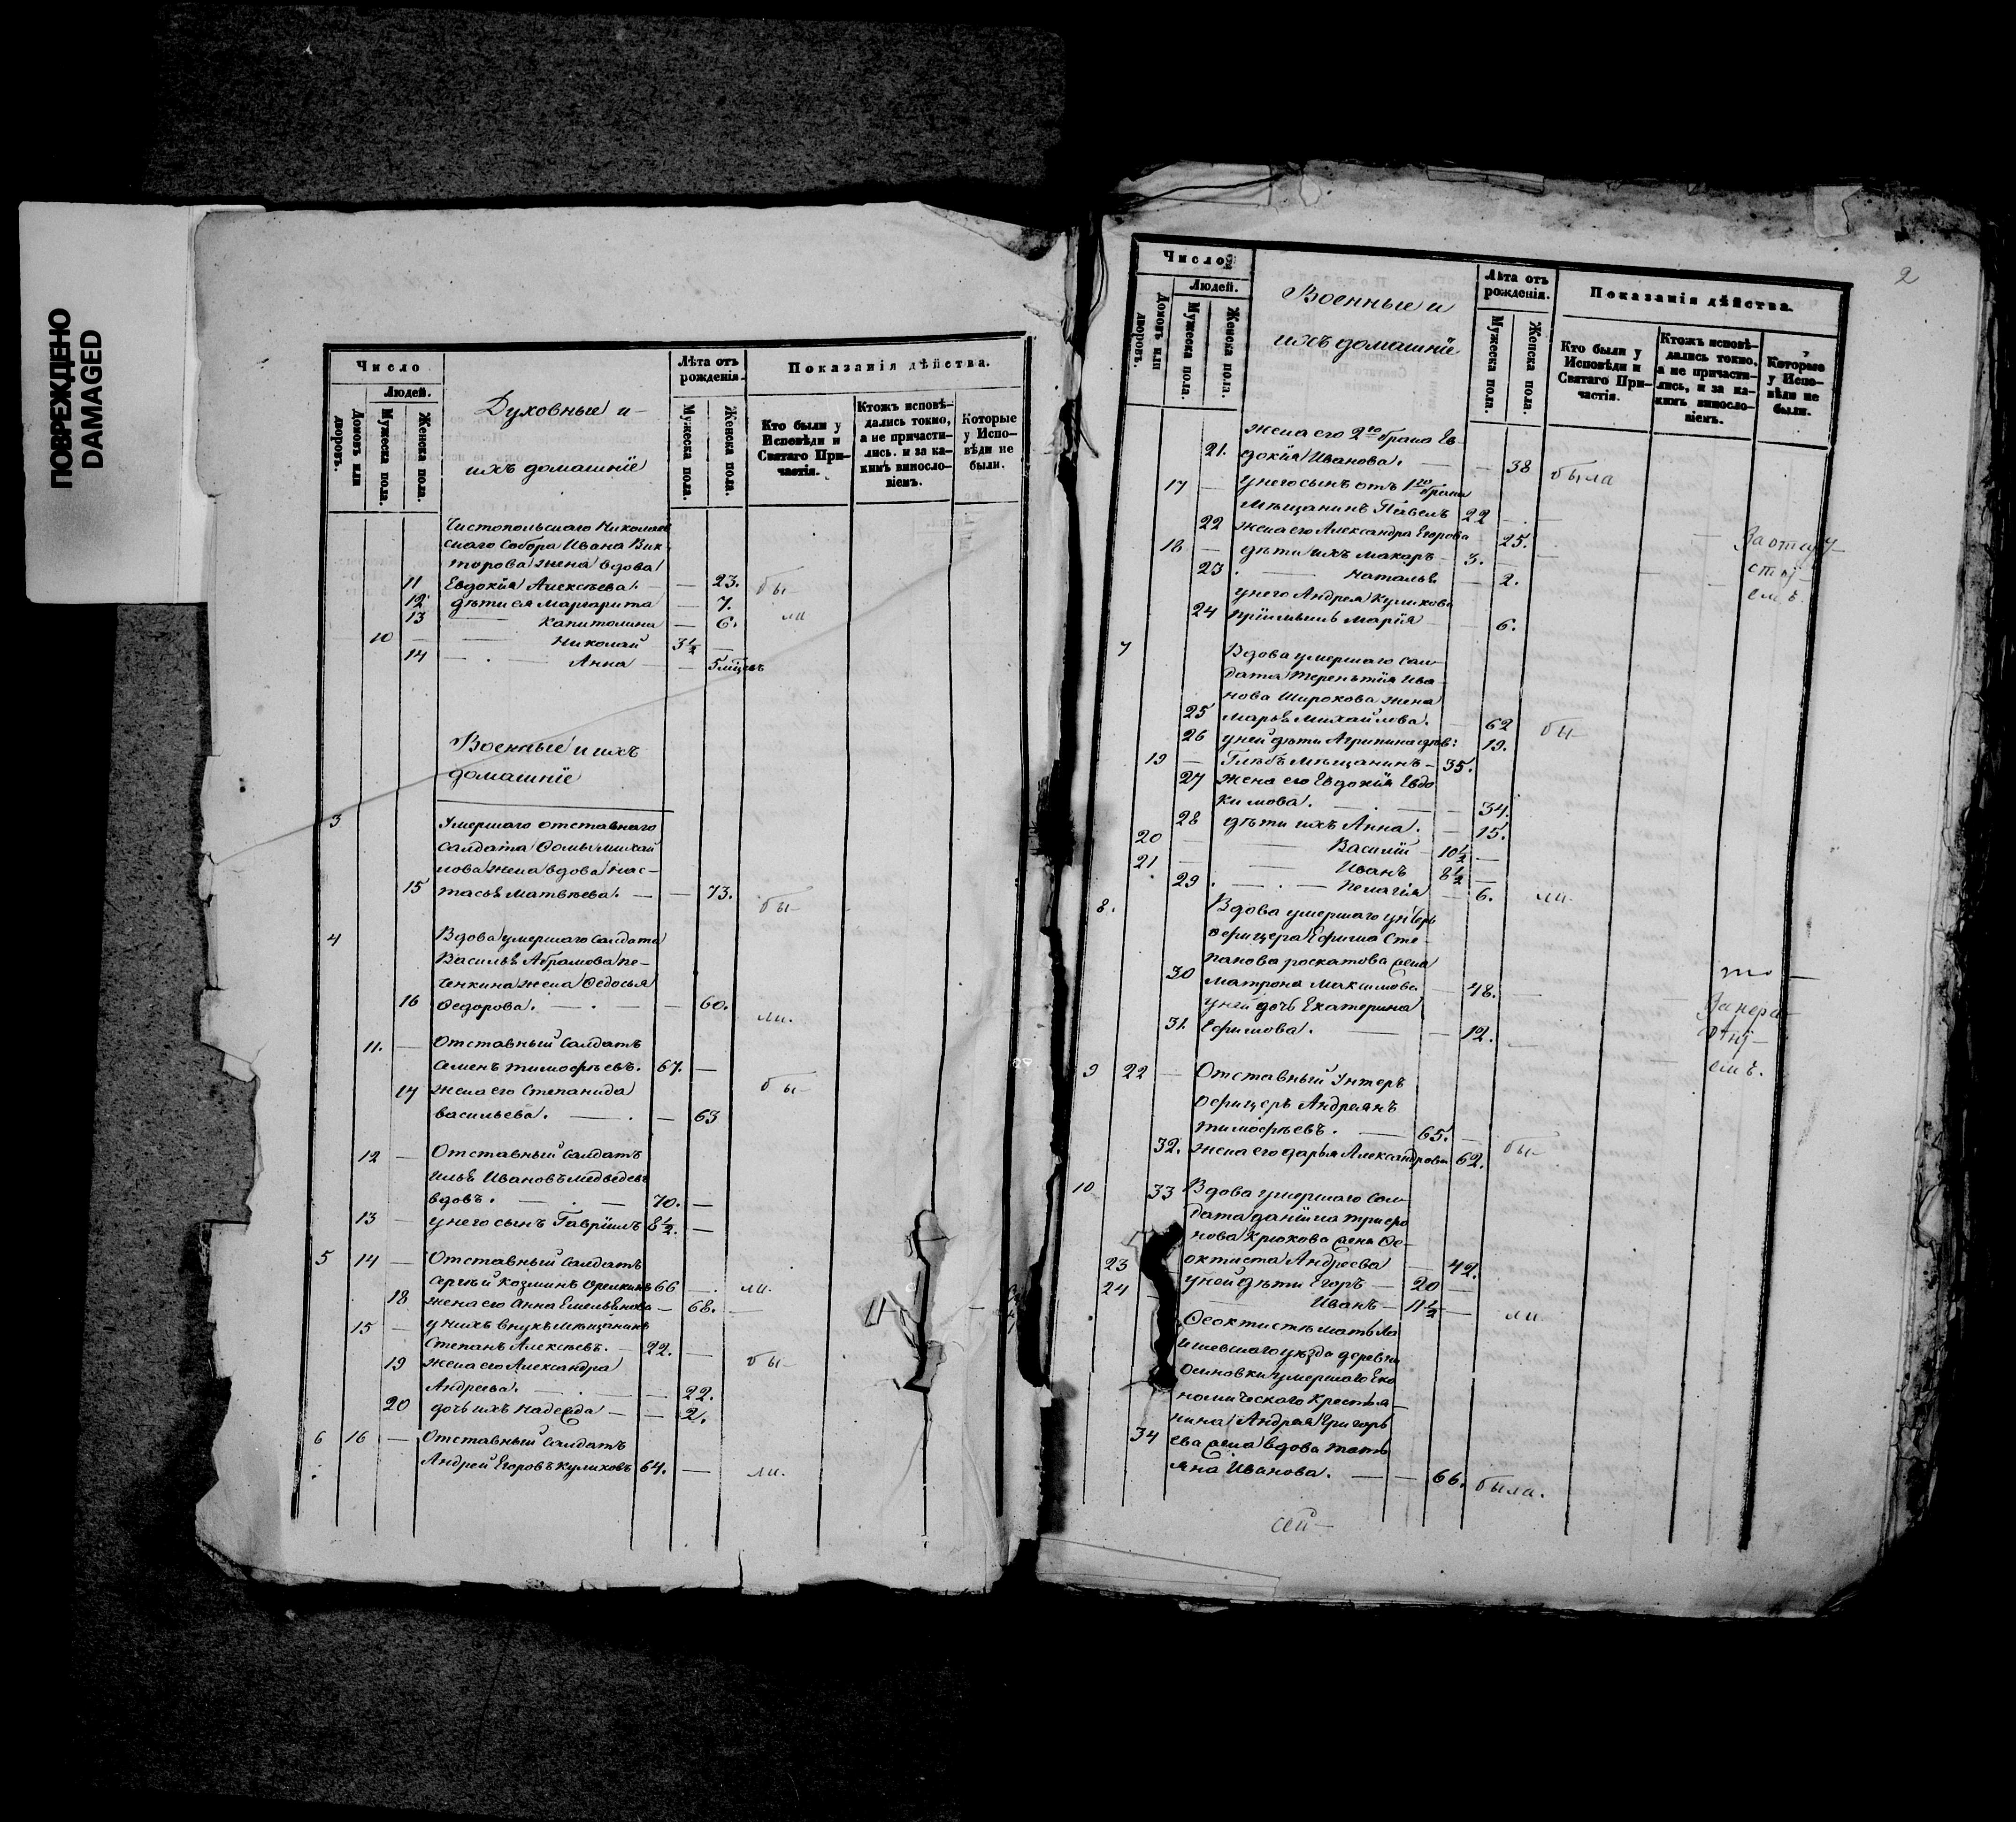 ПОВРЕЖДЕНО
DAMAGED
Число
Людей.
Домовъ или дворовъ.
Мужеска пола.
Женска пола.
Духовные и
ихъ домашніе
Лѣта отъ рожденія.
Мужеска пола.
Женска пола.
Показанія дѣйства.
Кто были у Исповѣди и Святаго Причастія.
Ктожъ исповѣдались токмо, а не причастились. и за какимъ винословіемъ.
Которые у Исповѣди не были.
Чистопольскаго Николаев
скаго Собора Ивана Вик
торова жена вдова
11 Евдокія Алексѣева. — — 23. бы-
12 дѣти ея Маргарита — 7.
13 — Капитолина — 6. ли
10 — — Николай 3½ —
14 — . — Анна — 5 мѣцевъ
Военные и ихъ
домашніе
3 Умершаго отставнаго
салдата Фомы Михай
лова жена вдова Нас-
15 тасья Матвѣева. — — 73. бы-
4 Вдова умершаго Салдата
Василья Абрамова Пе-
ченкина жена Федосья
16 Федорова. — . — — 60. ли.
11. — Отставный Салдатъ
Семенъ Тимофѣевъ. 67. —
17 жена его Степанида бы-
Васильева. — . — 63
12 — Отставный Салдатъ
Илья Ивановъ Медведевъ
вдовъ. — . — 70. —
13 — у него сынъ Гавріилъ 8½. —
5 14 — Отставный Салдатъ
Сергѣй Козминъ 66 — ли.
18 жена его Анна Емельянова — 68. —
15 — у нихъ внукъ мѣщанинъ
Степанъ Алексѣевъ. — 22. —
19 жена его Александра бы-
Андреева. — . — — 22.
20 дочь ихъ Надежда — — 2.
6 16 — Отставный Салдатъ
Андрей Егоровъ Куликовъ 64. — ли.
2
Число
Людей.
Домовъ или дворовъ.
Мужеска пола.
Женска пола.
Военные и
ихъ домашніе
Лѣта отъ рожденія.
Мужеска пола.
Женска пола.
Показанія дѣйства.
Кто были у Исповѣди и Святаго Причастія.
Ктожъ исповѣдались токмо, а не причастились, и за какимъ винословіемъ.
Которые у Исповѣди не были.
жена его 2го брака Ев-
21. докія Иванова. — — 38 была
17 — у него сынъ отъ 1го брака
Мѣщанинъ Павелъ 22 —
22 жена его Александра Егорова 25. — За отлу-
18 — дѣти ихъ Макаръ — 3. —
23 . — Наталья — 2. —
у него Андрея Куликова
24 пріимышъ Марія — 6.
7 Вдова умершаго Сал-
дата Терентія Ива-
нова Широкова жена
25 Марья Михайлова. — 62 бы-
26 у ней дѣти Агрипина дѣв: 19.
19 — Глѣбъ мѣщанинъ — 35.
27 жена его Евдокія Евдо
кимова. — . — — 34.
28 дѣти ихъ Анна. — 15.
20 — — Василій — 10½ —
21 — — Иванъ 8½ —
29 . — . — Пелагія — 6. ли.
8. Вдова умершаго унтеръ
офицера Ефима Сте-
панова жена
30 Матрона Максимова — 48. —
у ней дочь Екатерина
31. Ефимова. — — 12. —
9 22 — Отставный Унтеръ
Офицеръ Андреянъ
Тимофѣевъ. — 65. —
32. жена его Дарья Александрова 62. бы-
10 33 Вдова умершаго Сал-
дата Данила
Крюкова жена Фе-
октиста Андреева — 42.
23 у ней дѣти Егоръ — 20 —
24 — Иванъ — 11½ — ли.
Феоктистѣ мать Ла
ишевскаго уѣзда деревни
Осиновки умершаго Еко
номическаго крестья-
нина Андрея Григорь
34 ева жена вдова Тать
яна Иванова. — — 66. была.